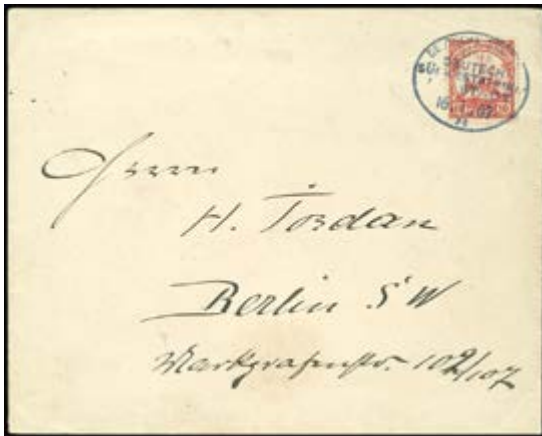 DEUTSCH
16
Herrn
H. Jordan
Berlin S W
Markgrafenstr. 102/107